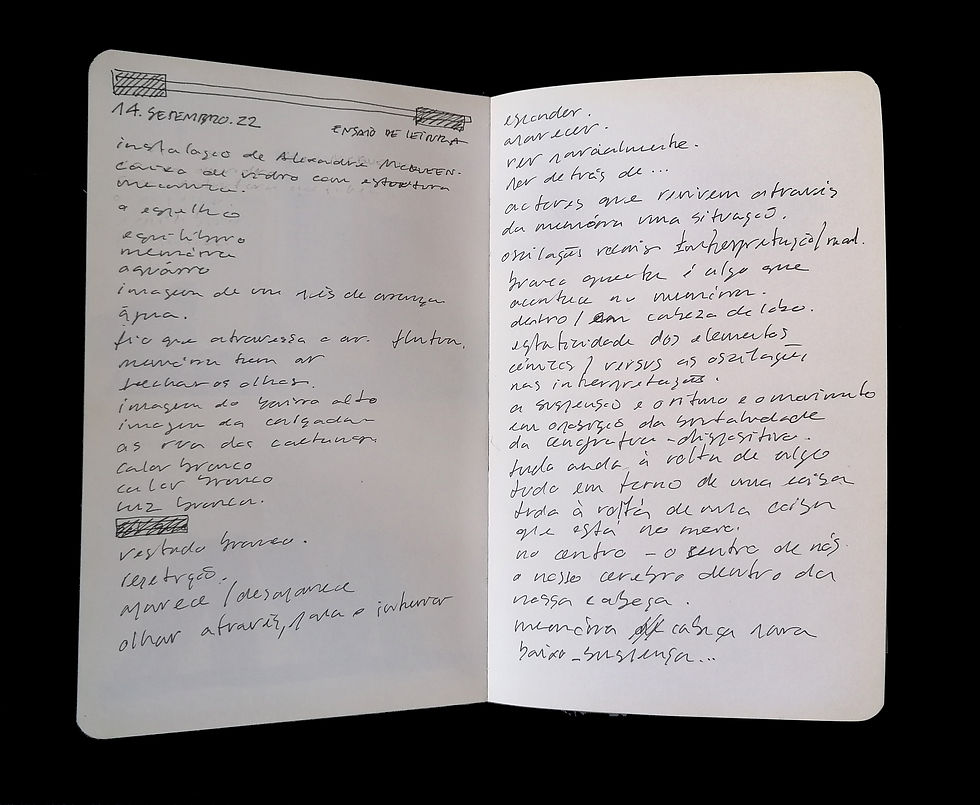 14. SETEMBRO. 22
ENSAIO DE LEITURA
instalação de Alexandre McQUEEN.
caixa de vidro com estrutura
mecanica.
o espelho
equilibro
memória
aquário
imagem de um de
água.
fio que atravessa o ar. flutua.
memória tem ar
fechar os olhos.
imagem do bairro alto
imagem da calçada
as rua das
calor branco
calor branco
luz branca.
vestado branco.
repetição.
aparece / desaparece
olhar através, para o interior
esconder.
aparecer.
ver parcialmente.
ver detrás de...
actores que revivem através
da memória uma situação.
oscilações interpretação / real.
branco quente é algo que
acontece na memória.
dentro / em cabeza de lobo.
estaticidade dos elementos
cénicos / versus as oscilações
nas interpretações.
a suspensão e o ritmo e o movimento
em oposição da brutalidade
da cenografia - dispositivo.
tudo anda à volta de algo
tudo em torno de uma coisa
tudo à volta de uma coisa
que está no meio.
no centro - o centro de nós.
o nosso cerebro dentro da
nossa cabeça.
memória cabeça para
baixo - suspensa...